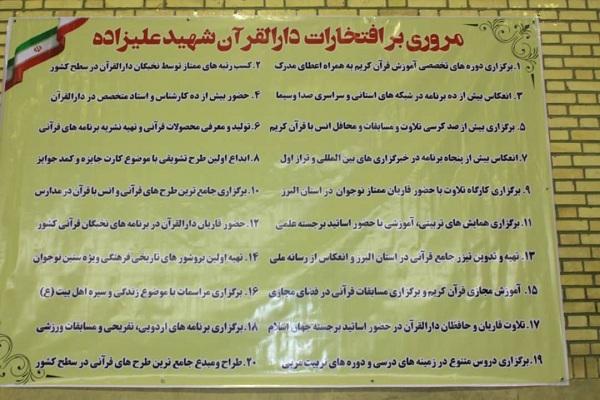 مروری بر افتخارات دارالقرآن شهید علیزاده
۱. برگزاری دوره های تخصصی آموزش قرآن کریم به همراه اعطای مدرک
۲. کسب رتبه های ممتاز توسط نخبگان دارالقرآن در سطح کشور
۳. انعکاس بیش از ده برنامه در شبکه های استانی و سراسری صدا و سیما
۴. حضور بیش از ده کارشناس و استاد متخصص در دارالقرآن
۵. برگزاری بیش از صد کرسی تلاوت و مسابقات و محافل انس با قرآن کریم
۶. تولید و معرفی محصولات قرآنی و تهیه نشریه برنامه های قرآنی
۷. انعکاس بیش از پنجاه برنامه در خبرگزاری های بین المللی و تراز اول
۸. ابداع اولین طرح تشویقی با موضوع کارت جایزه و کمد جوایز
۹. برگزاری کارگاه تلاوت با حضور قاریان ممتاز نوجوان در استان البرز
۱۰. برگزاری جامع ترین طرح های قرآنی و انس با قرآن در مدارس
۱۱. برگزاری همایش های تربیتی، آموزشی با حضور اساتید برجسته علمی
۱۲. حضور قاریان دارالقرآن در برنامه های نخبگان قرآنی کشور
۱۳. تهیه و تدوین تیزر جامع قرآنی در استان البرز و انعکاس از رسانه ملی
۱۴. تهیه اولین بروشور های تاریخی فرهنگی ویژه سنین نوجوان
۱۵. آموزش مجازی قرآن کریم و برگزاری مسابقات قرآنی در فضای مجازی
۱۶. برگزاری مراسمات با موضوع زندگی و سیره اهل بیت (ع)
۱۷. تلاوت قاریان و حافظان دارالقرآن در حضور اساتید برجسته جهان اسلام
۱۸. برگزاری برنامه های اردویی، تفریحی و مسابقات ورزشی
۱۹. برگزاری دروس متنوع در زمینه های درسی و دوره های تربیت مربی
۲۰. طراح و مبدع جامع ترین طرح های قرآنی در سطح کشور